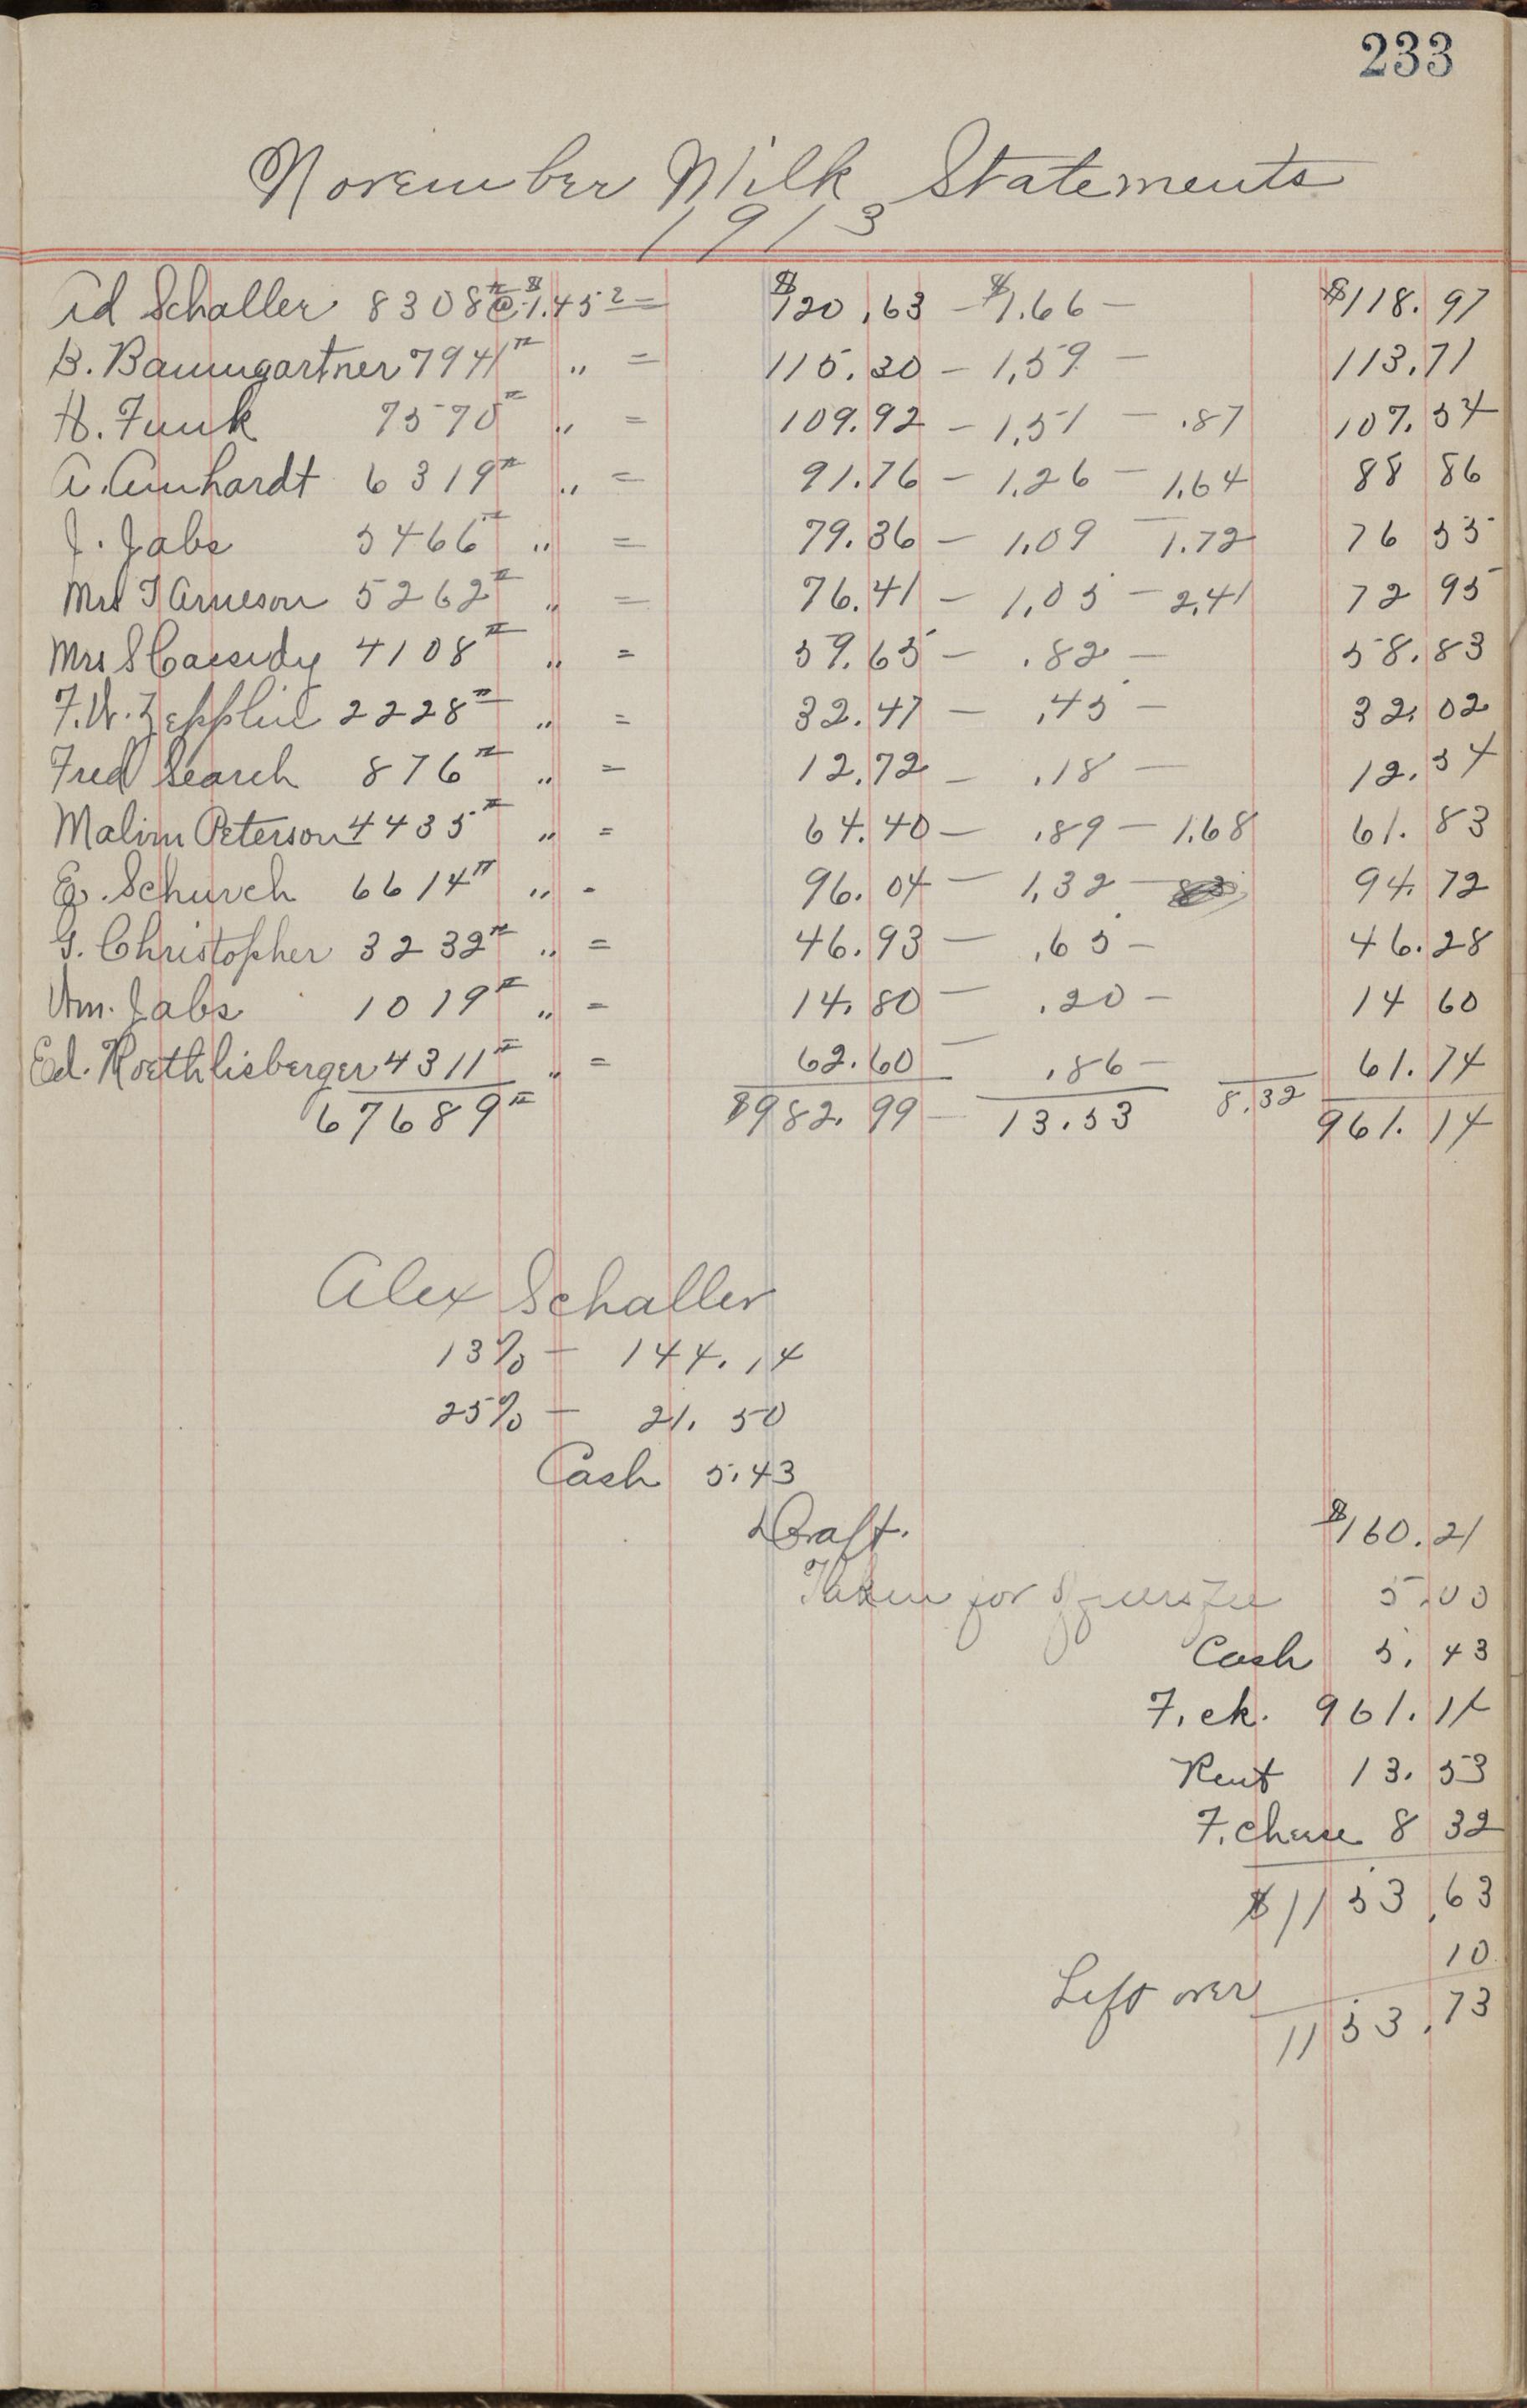 233
November Milk Statements
1913
Ad Schaller 8308# @ $1.45² = $120.63 - $1.66 - $118.97
B. Baumgartner 7941# " = 115.30 - 1.59 - 113.71
H. Funk 7570# " = 109.92 - 1.51 - .87 107.54
A. Amhardt 6319# " = 91.76 - 1.26 - 1.64 88 86
J. Jabs 5466# " = 79.36 - 1.09 - 1.72 76 55
Mrs T Arneson 5262# " = 76.41 - 1.05 - 2.41 72 95
Mrs S Cassidy 4108# " = 59.65 - .82 - 58.83
F.W. Zepplin 2228# " = 32.47 - .45 - 32.02
Fred Search 876# " = 12.72 - .18 - 12.54
Malim Peterson 4435# " = 64.40 - .89 - 1.68 61.83
E. Schurch 6614# " - 96.04 - 1.32 - 94.72
G. Christopher 3232# " = 46.93 - .65 - 46.28
Wm. Jabs 1019# " = 14.80 - .20 - 14 60
Ed. Roethlisberger 4311# " = 62.60 - .86 - 61.74
67689# $982.99 - 13.53 8.32 961.14
Alex Schaller
13% - 144.14
25% - 21.50
Cash 5.43
Draft. $160.21
Taken for 5.00
Cash 5.43
F. ck. 961.14
Rent 13.53
F. cheese 8 32
$1153.63
10
Left over
1153.73